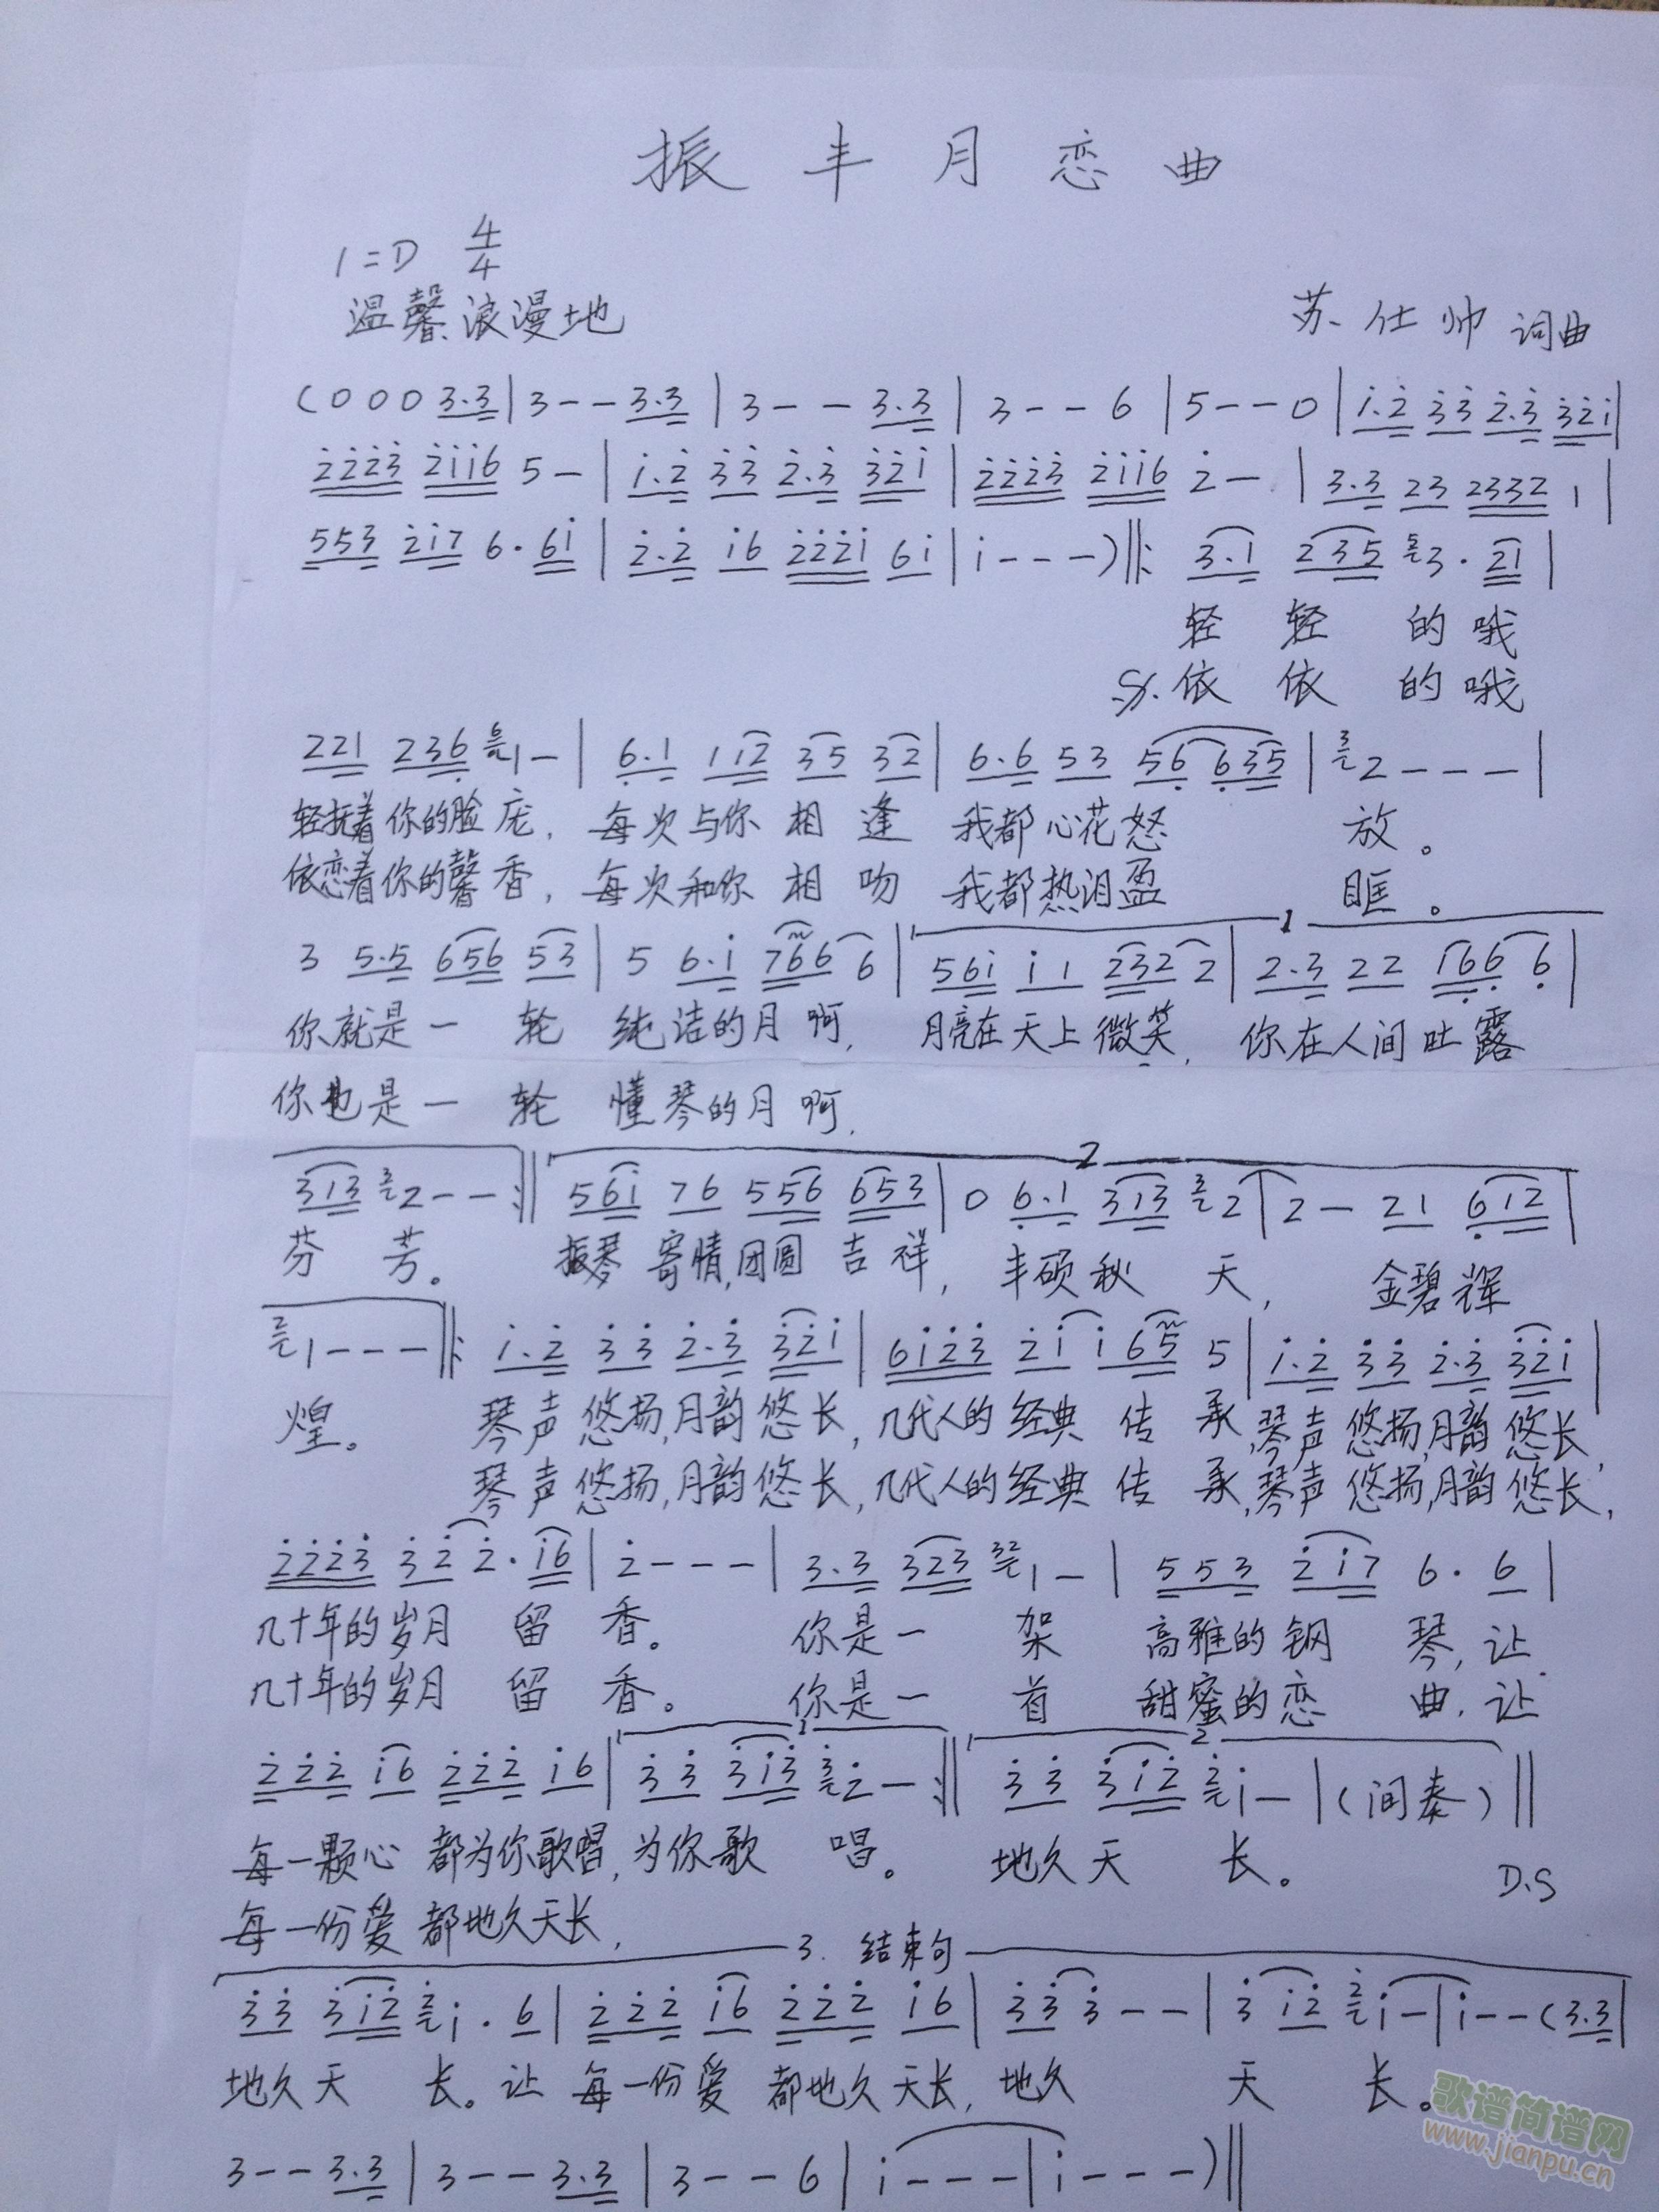 振丰月恋曲
1=D 4/4
温馨、浪漫地
苏仕帅 词曲
(0 0 0 3.3 | 3 - - 3.3 | 3 - - 3.3 | 3 - - 6 | 5 - - 0 | i.2̇ 3̇3̇ 2̇.3̇ 3̇2̇i |
2̇2̇2̇3̇ 2̇ii6 5 - | i.2̇ 3̇3̇ 2̇.3̇ 3̇2̇i | 2̇2̇2̇3̇ 2̇ii6 2̇ - | 3.3 23 2332 1 |
553 2̇i7 6. 6i | 2̇.2̇ i6 2̇2̇2̇i 6i | i - - - ) ‖: 3.1 235 ⁵3. 21 |
轻 轻 的 哦
𝄋 依 依 的 哦
221 236̣ ⁶1 - | 6̣.1 112 35 32 | 6.6 53 56̣ 6̣35 | ³2 - - - |
轻抚着你的脸庞, 每次与你相逢 我都心花怒 放。
依恋着你的馨香, 每次和你相吻 我都热泪盈 眶。
3 5.5 656 53 | 5 6.i 7666 | 1. 56i i1 232 2 | 2.3 22 16̣6̣ 6̣ |
你就是一 轮 纯洁的月啊, 月亮在天上微笑, 你在人间吐露
你也是一 轮 懂琴的月啊,
313 ³2 - - :‖ 2. 56i 76 556 653 | 0 6̣.1 313 ³2 | 2 - 21 6̣12 |
芬 芳。 振琴寄情,团圆吉祥, 丰硕秋 天, 金碧辉
²1 - - - ‖: i.2̇ 3̇3̇ 2̇.3̇ 3̇2̇i | 6i2̇3̇ 2̇i i65 5 | i.2̇ 3̇3̇ 2̇.3̇ 3̇2̇i |
煌。 琴声悠扬,月韵悠长, 几代人的经典传 承,琴声悠扬,月韵悠长,
琴声悠扬,月韵悠长, 几代人的经典传 承,琴声悠扬,月韵悠长,
2̇2̇2̇3̇ 3̇2̇ 2̇. i6 | 2̇ - - - | 3.3 323 ³²1 - | 553 2̇i7 6. 6 |
几十年的岁月 留 香。 你是一 架 高雅的钢 琴,让
几十年的岁月 留 香。 你是一 首 甜蜜的恋 曲,让
2̇2̇2̇ i6 2̇2̇2̇ i6 | 1. 3̇3̇ 3̇i3̇ ³2̇ - :‖ 2. 3̇3̇ 3̇i2̇ ²i - | (间奏) ‖
每一颗心 都为你歌唱,为你歌 唱。 地久天 长。 D.S
每一份爱 都地久天长,
3. 结束句
3̇3̇ 3̇i2̇ ²i. 6 | 2̇2̇2̇ i6 2̇2̇2̇ i6 | 3̇3̇ 3̇ - - | 3̇ i2̇ ²i - | i - - (3.3 |
地久天 长。让 每一份爱 都地久天长, 地久 天 长。
3 - - 3.3 | 3 - - 3.3 | 3 - - 6 | i - - - | i - - - ) ‖
歌谱简谱网
www.jianpu.cn